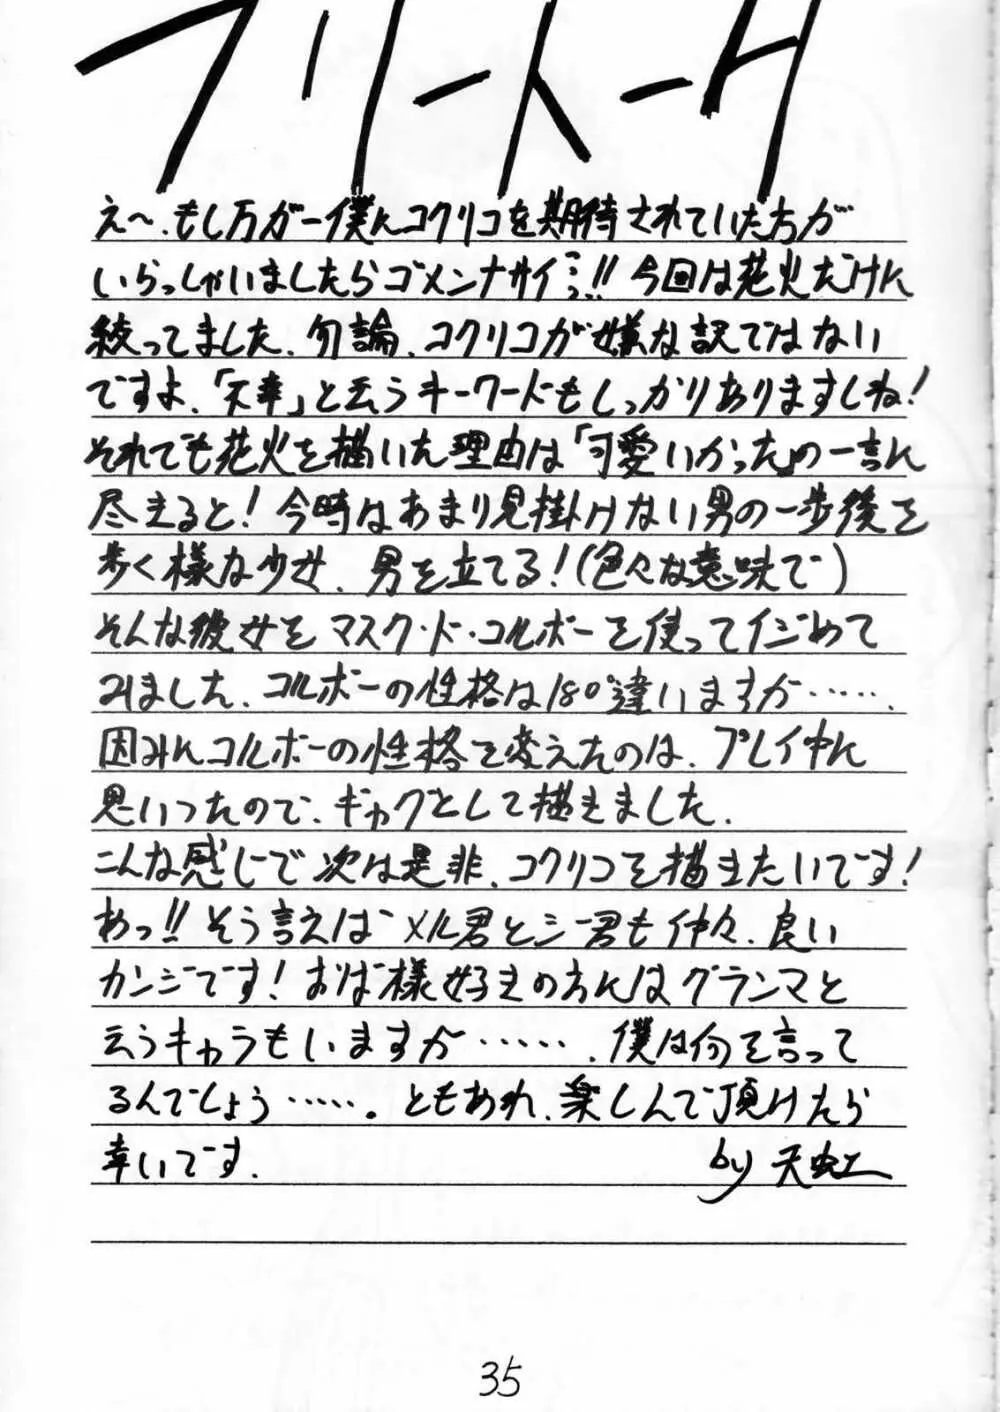 フリートーク
え〜、もし万が一僕にコクリコを期待されていた方が
いらっしゃいましたらゴメンナサイ…!! 今回は花火だけに
絞ってました、勿論、コクリコが嫌な訳ではない
ですよ、「不幸」と云うキーワードもしっかりありますしね!
それでも花火を描いた理由は「可愛いかった」の一言に
尽きると! 今時はあまり見掛けない男の一歩後を
歩く様な少女、男を立てる!(色々な意味で)
そんな彼女をマスク・ド・コルボーを使ってイジめて
みました、コルボーの性格は180°違いますが……、
因みにコルボーの性格を変えたのは、プレイ中に
思いつったので、ギャグとして描きました、
こんな感じで次は是非、コクリコを描きたいです!
あっ!! そう言えばメル君とシー君も仲々、良い
カンジです! おば様好きの方にはグランマと
云うキャラもいますが……、僕は何を言って
るんでしょう……。ともあれ、楽しんで頂けたら
幸いです、
by 天虹
35